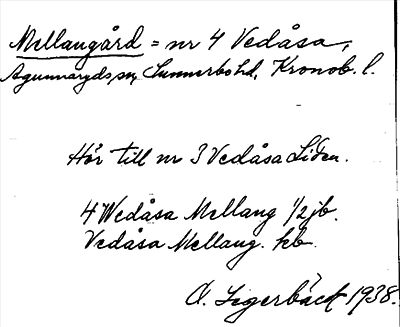 Mellangård = nr 4 Vedåsa,
Agunnaryds sn, Sunnerbo hd, Kronob. l.
Hör till nr 3 Vedåsa Liden.
4 Wedåsa Mellang 1/2 jb.
Vedåsa Mellang. kb.
A. Segerbäck 1938.